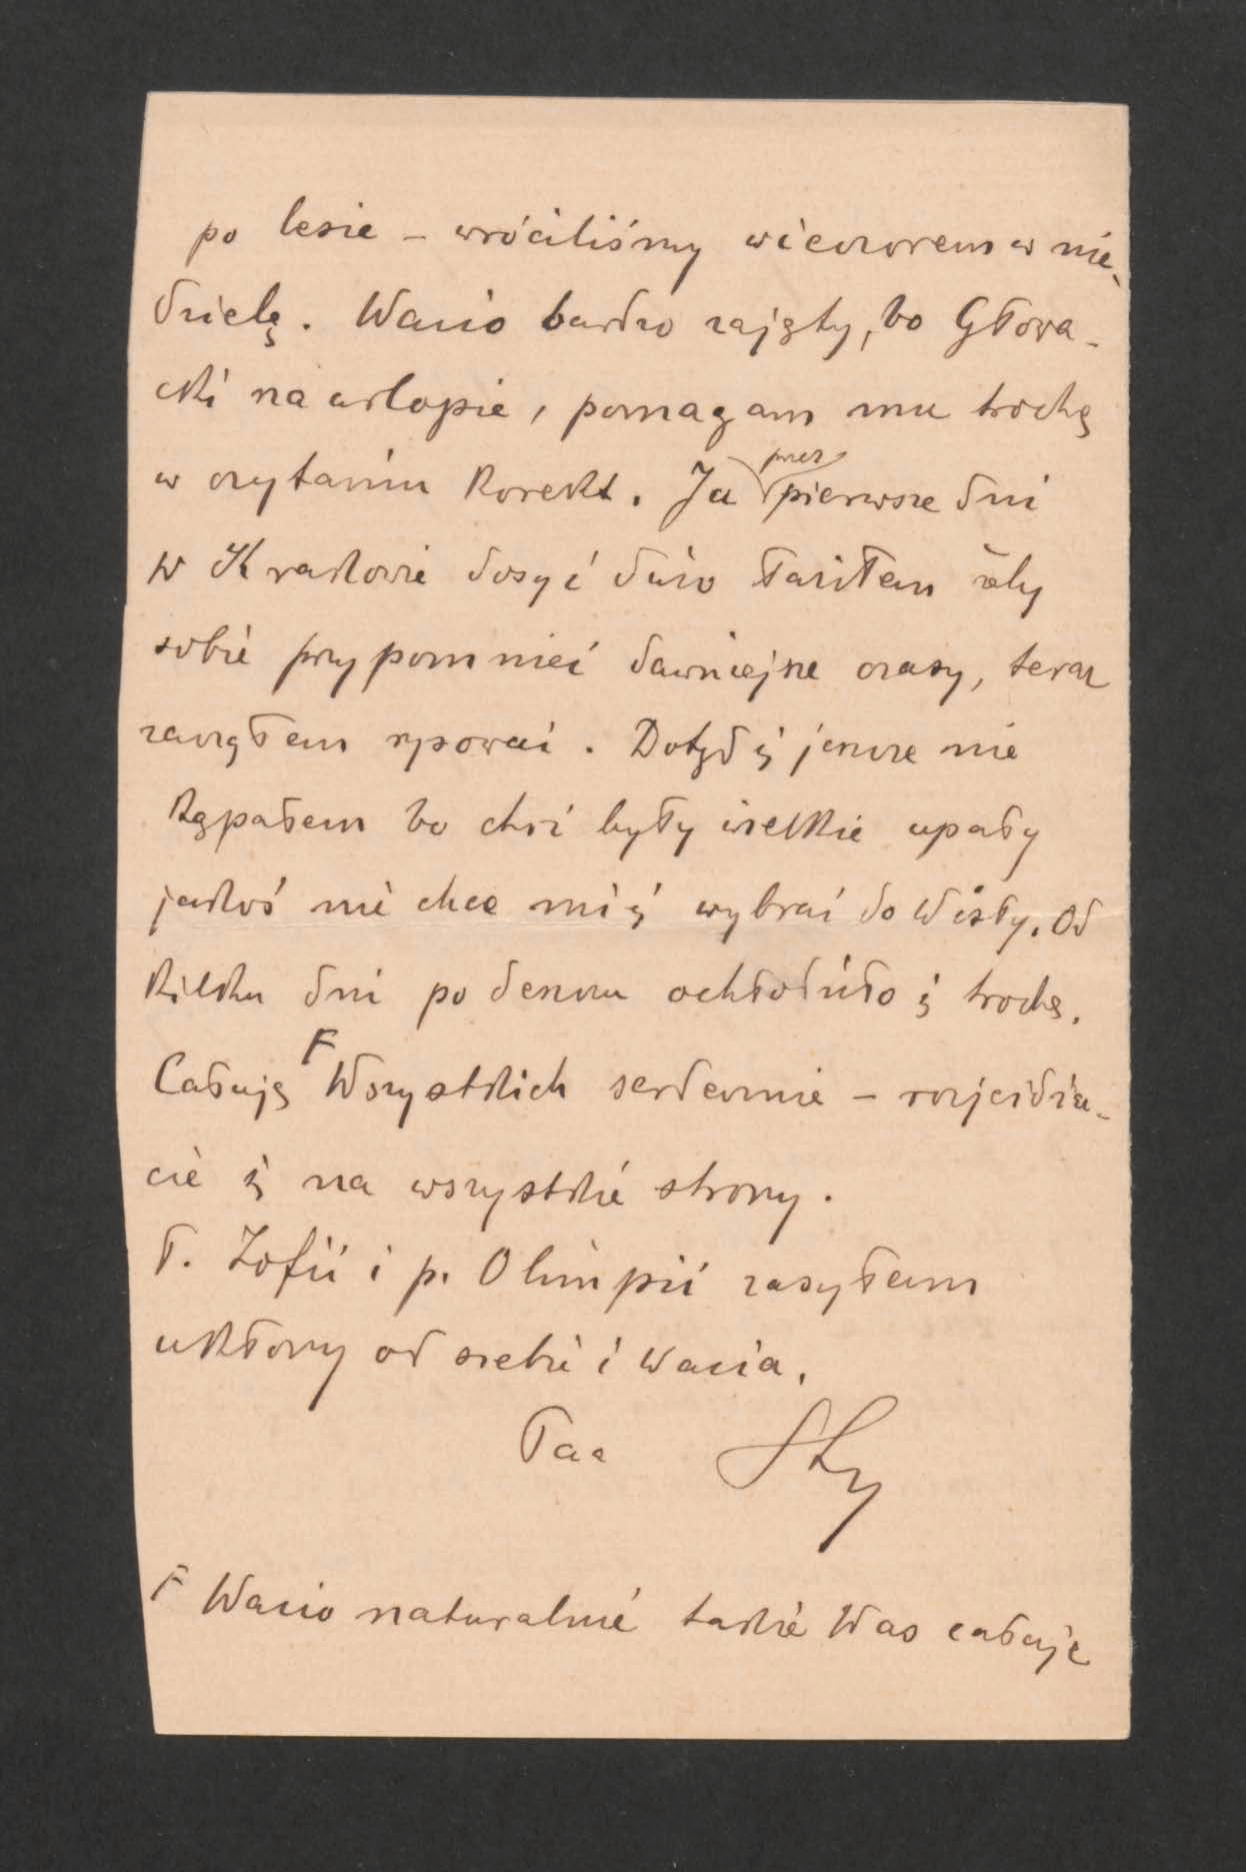 po lesie – wróciliśmy wieczorem w nie-
dzielę. Wacio bardzo zajęty, bo Głowa-
cki na urlopie, pomagam mu trochę
w czytaniu korekt. Ja przez pierwsze dni
w Krakowie dosyć dużo łaziłem żeby
sobie przypomnieć dawniejsze czasy, teraz
zacząłem rysować. Dotąd się jeszcze nie
kąpałem bo choć były wielkie upały
jakoś nie chce mi się wybrać do Wisły. Od
kilku dni po deszczu ochłodziło się trochę.
Całuję F Wszystkich serdecznie – rozjeżdża-
cie się na wszystkie strony.
P. Zofii i p. Olimpii zasyłam
ukłony od siebie i Wacia.
Sty
F Wacio naturalnie także Was całuje